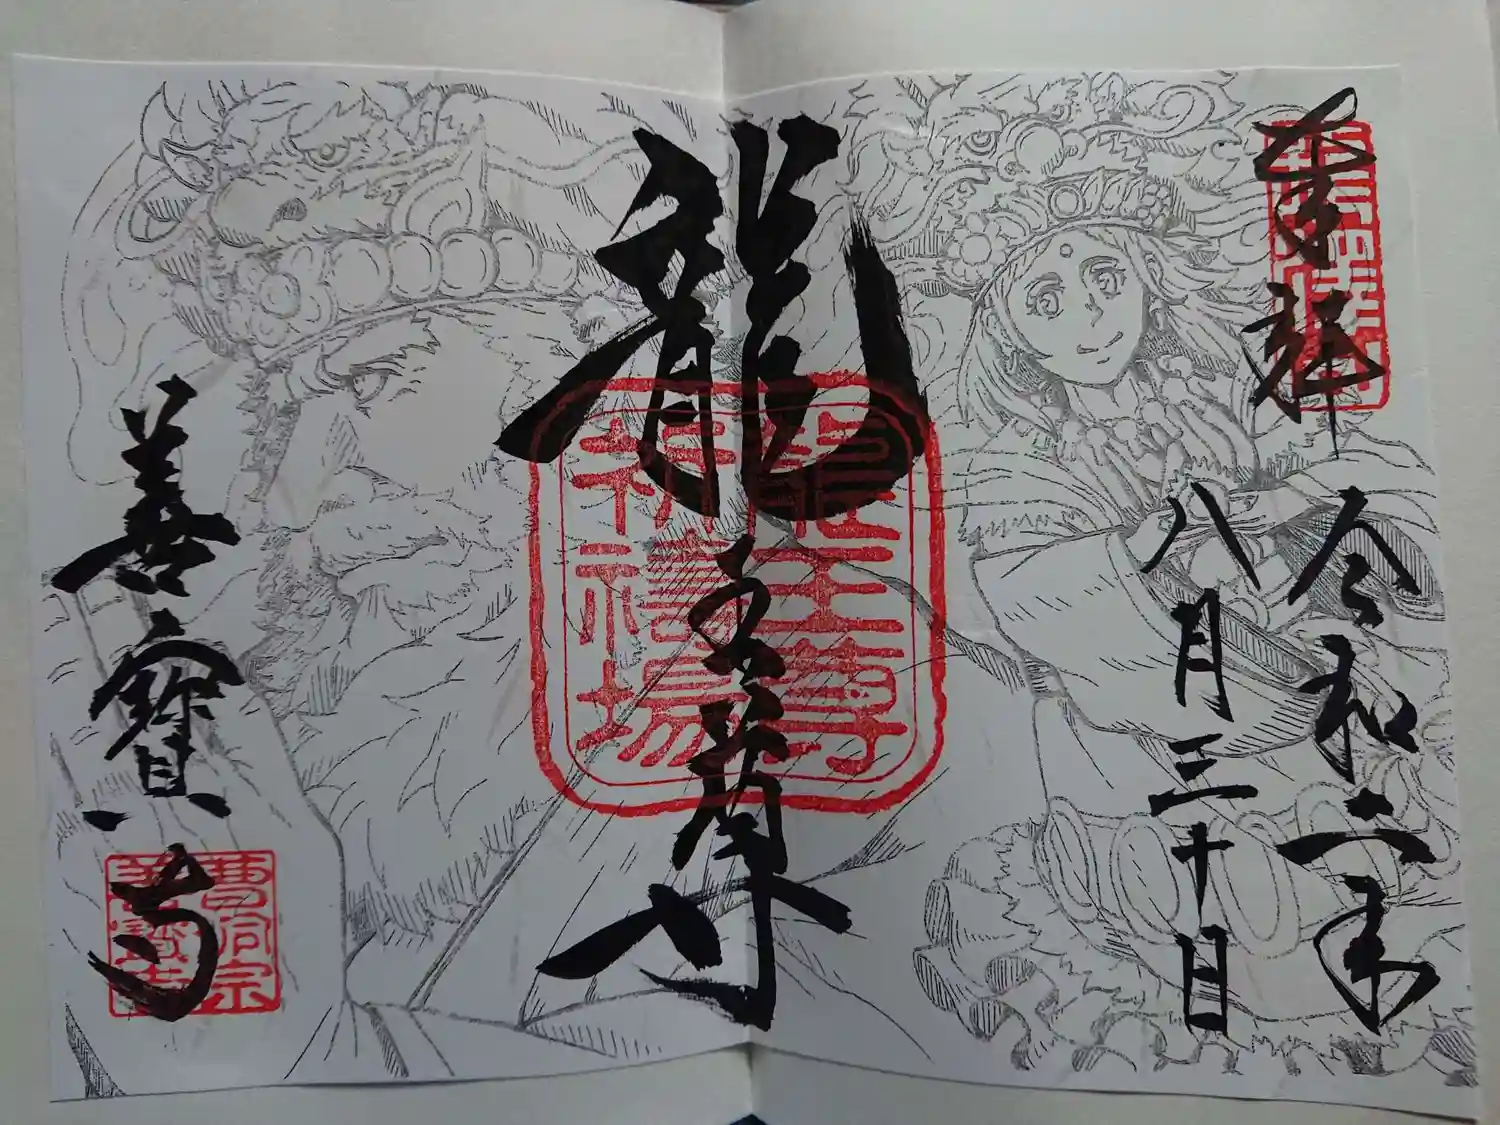 奉拝
令和二年
八月三十日
龍王尊
龍王尊
祈祷場
善寳寺
曹洞宗
善寳寺